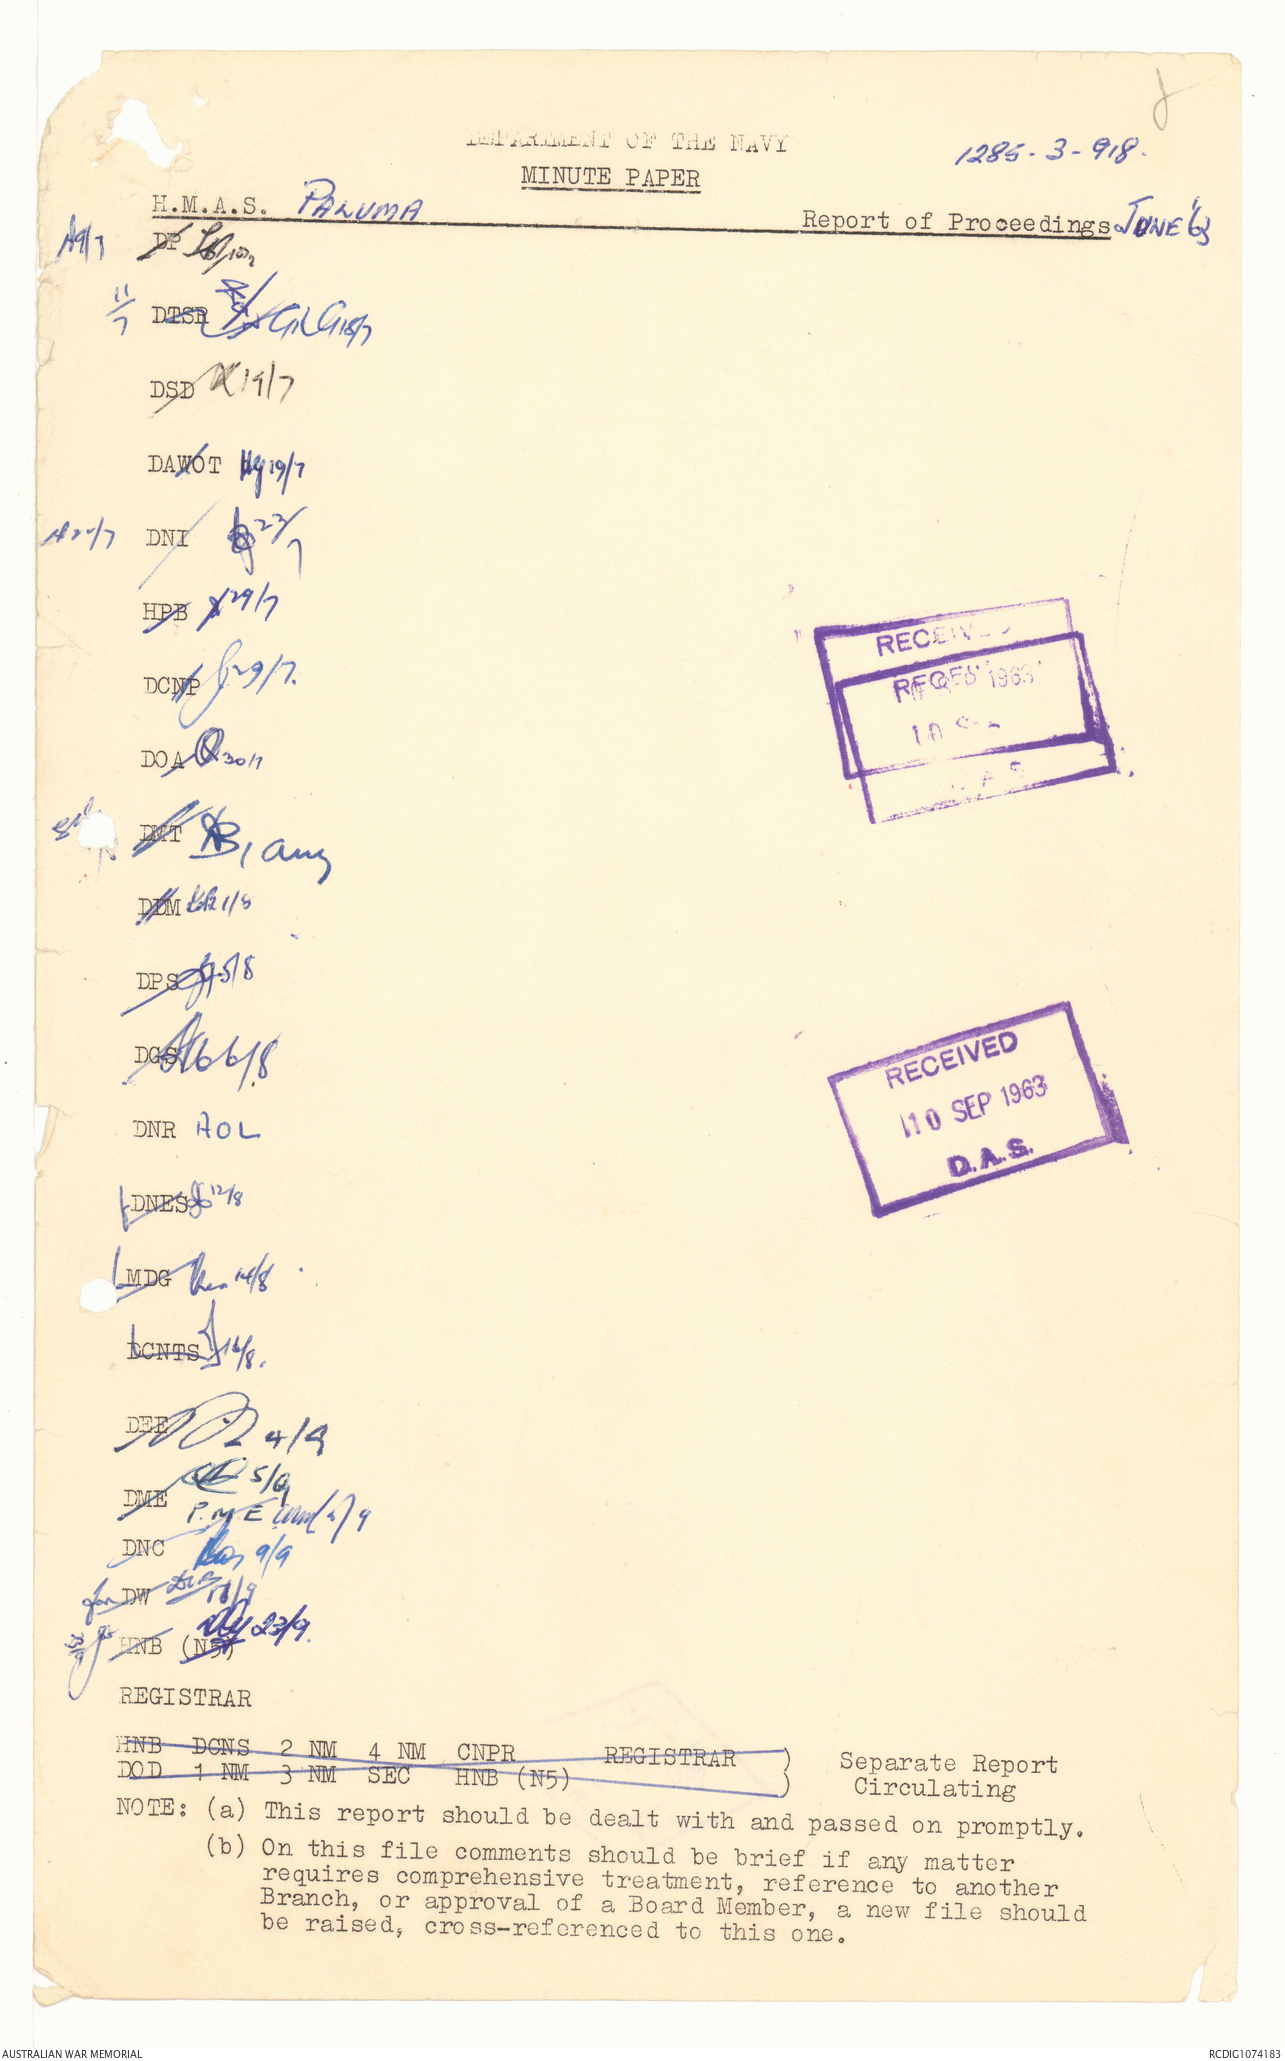 DEPARTMENT OF THE NAVY
1285-3-918.
MINUTE PAPER
H.M.A.S. PALUMA
Report of Proceedings JUNE '63
DP
11/7
DTSR
DSD 19/7
DAWOT 19/7
DNI 23/7
HPB 29/7
DCNP 29/7.
DOA 30/7
DMT 1 Aug
DDM 1/8
DPS 5/8
DGS 6/8
DNR AOL
DNES 12/8
MDG 14/8
DCNTS
DEE 4/9
DME 5/9
P.M E
DNC 9/9
DW
HNB (N5) 23/9.
REGISTRAR
RECEIVED
RECEIVED
1963
RECEIVED
10 SEP 1963
D.A.S.
HNB DCNS 2 NM 4 NM CNPR REGISTRAR )
DOD 1 NM 3 NM SEC HNB (N5) )
Separate Report
Circulating
NOTE: (a) This report should be dealt with and passed on promptly.
(b) On this file comments should be brief if any matter
requires comprehensive treatment, reference to another
Branch, or approval of a Board Member, a new file should
be raised, cross-referenced to this one.
AUSTRALIAN WAR MEMORIAL
RCDIG1074183